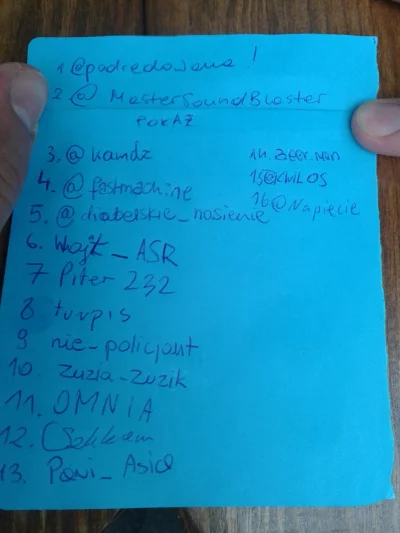 1 @podredowana !
2 @ MasterSoundBlaster
POKAŻ
3. @kamdz
4. @fastmachine
5. @diabelskie_nasienie
6. Wojt_ASR
7 Piter 232
8 turpis
9 nie_policjant
10. Zuzia-Zuzik
11. OMNIA
12.
13. Pani_Asia
14. Zeer.man
15@KWILOS
16@Napięcie